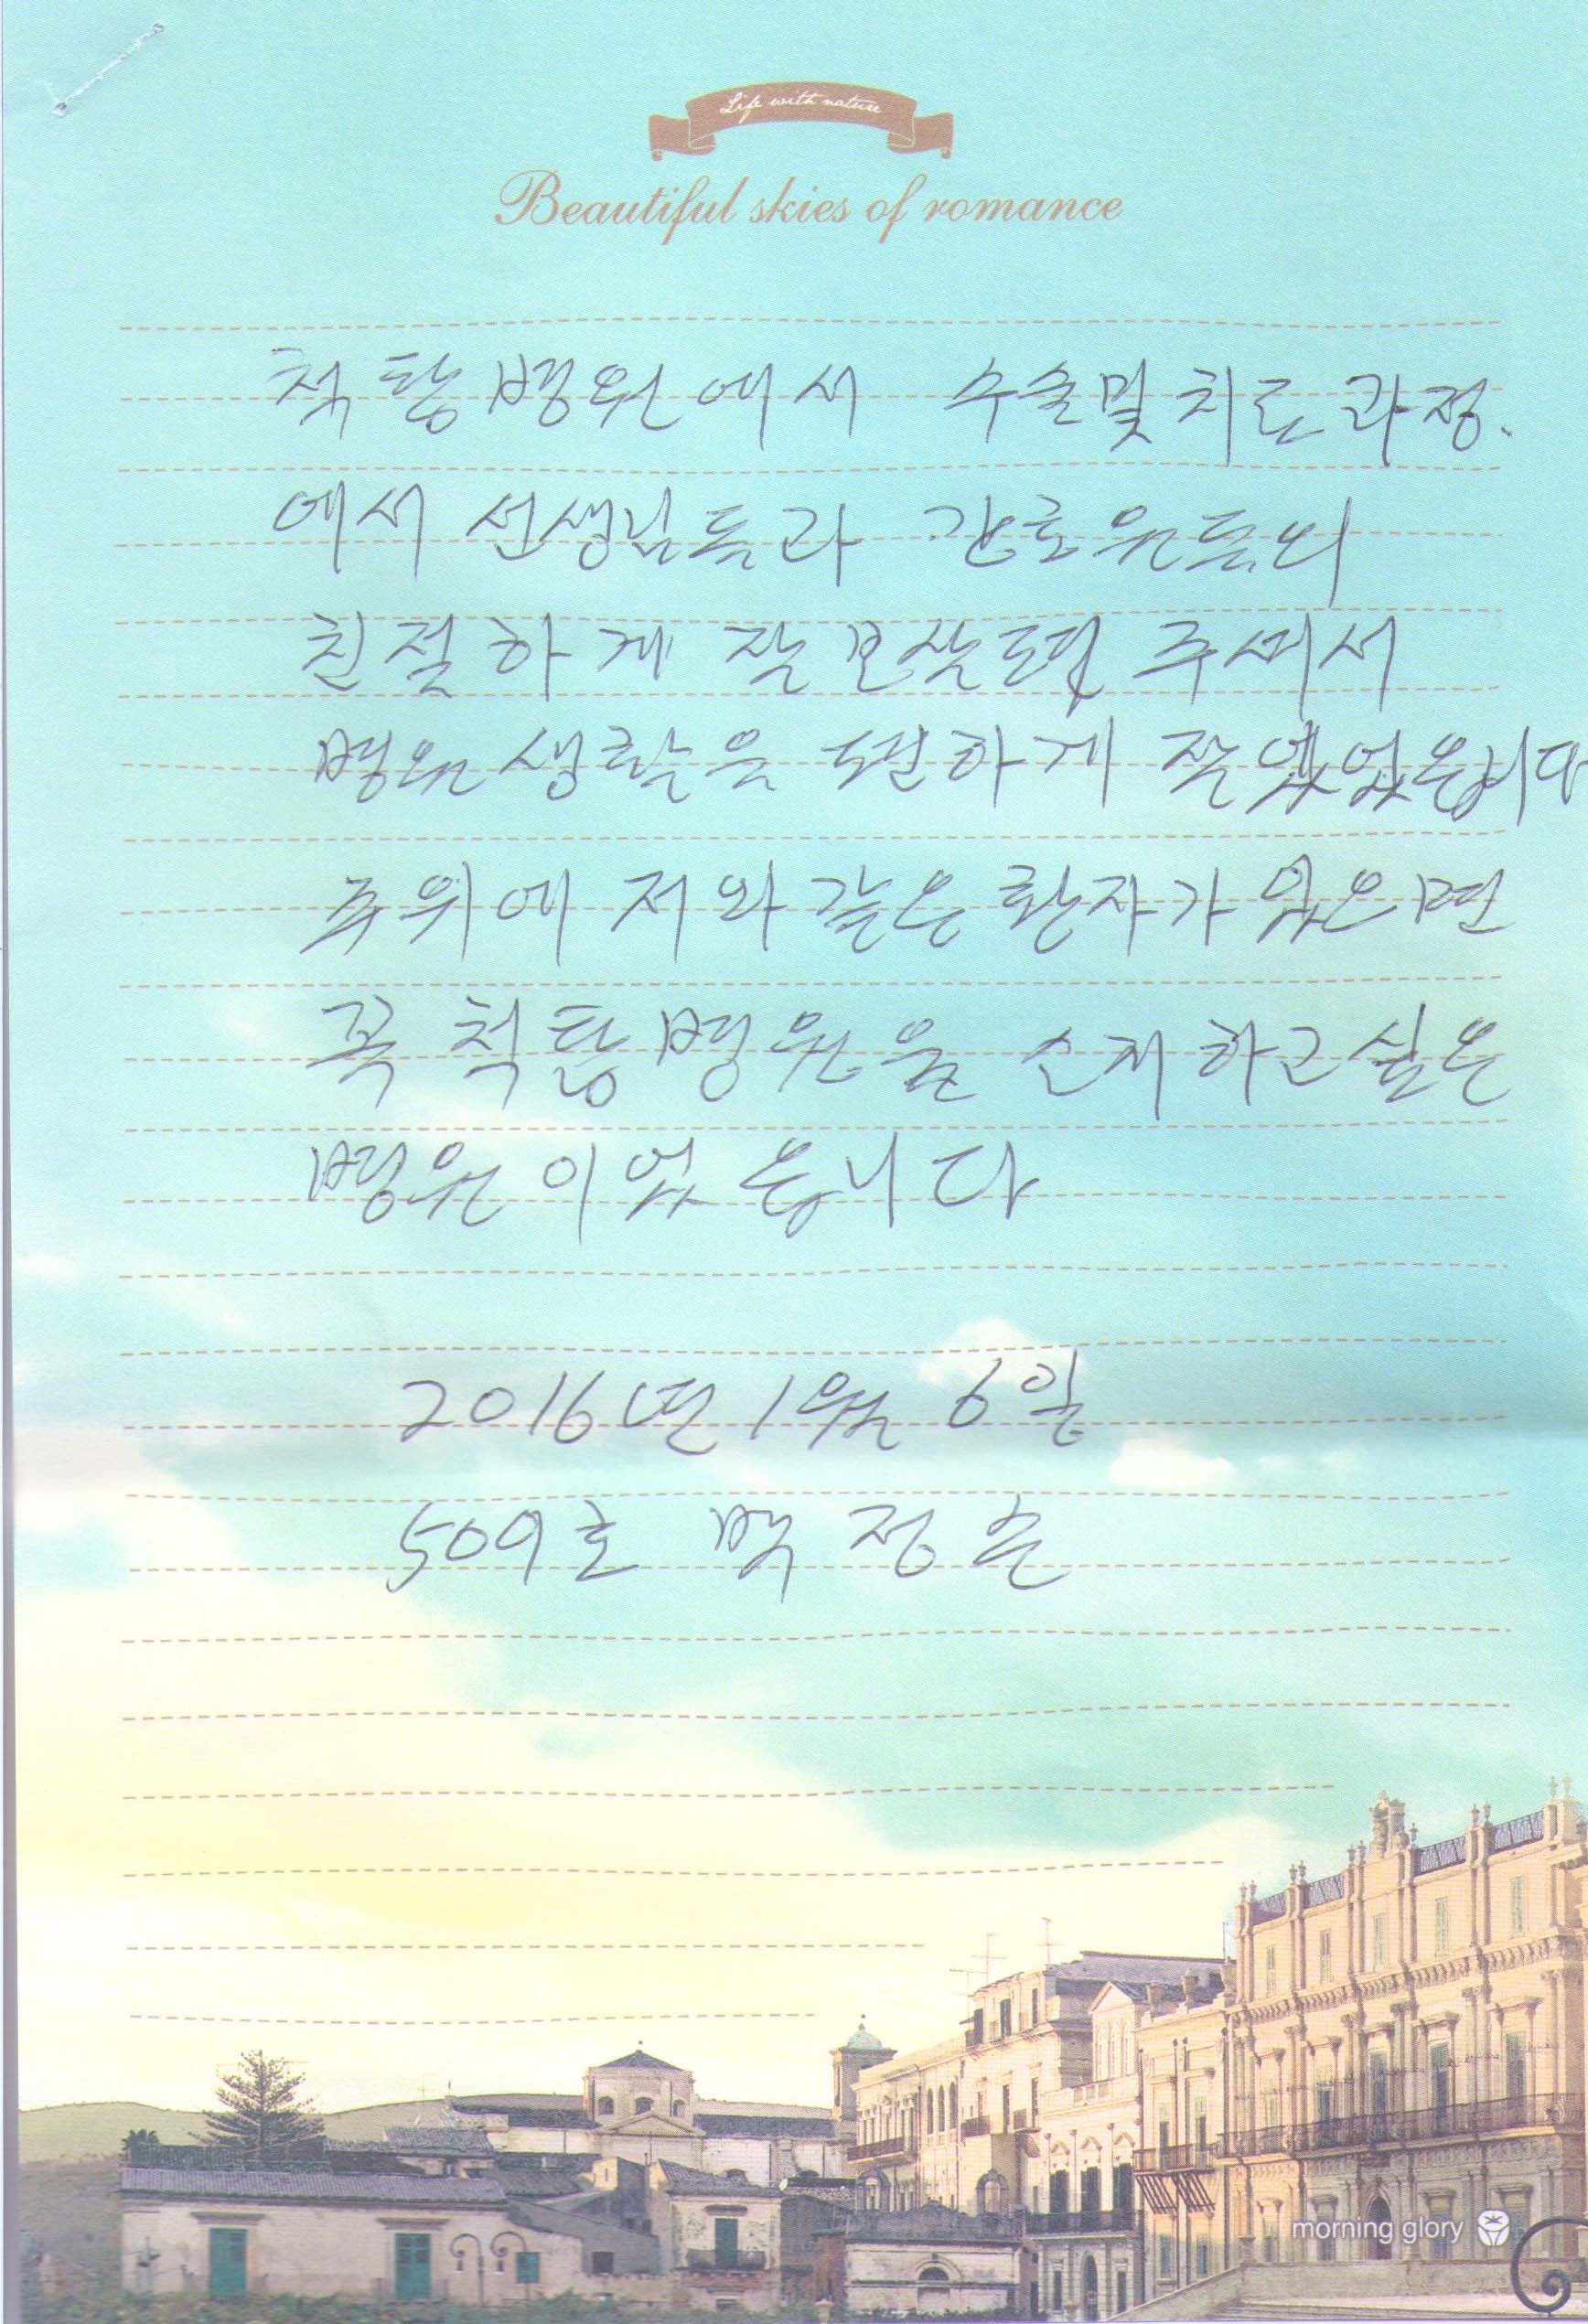 Life with nature
Beautiful skies of romance
척탑병원에서 수술및치료과정.
에서 선생님들과 간호원들의
친절하게 잘 보살펴 주셔서
병원생활을 편하게 잘 있었읍니다
주위에 저와 같은 환자가 있으면
꼭 척탑병원을 소개하고싶은
병원이었읍니다
2016년 1월 6일
509호 백정순
morning glory